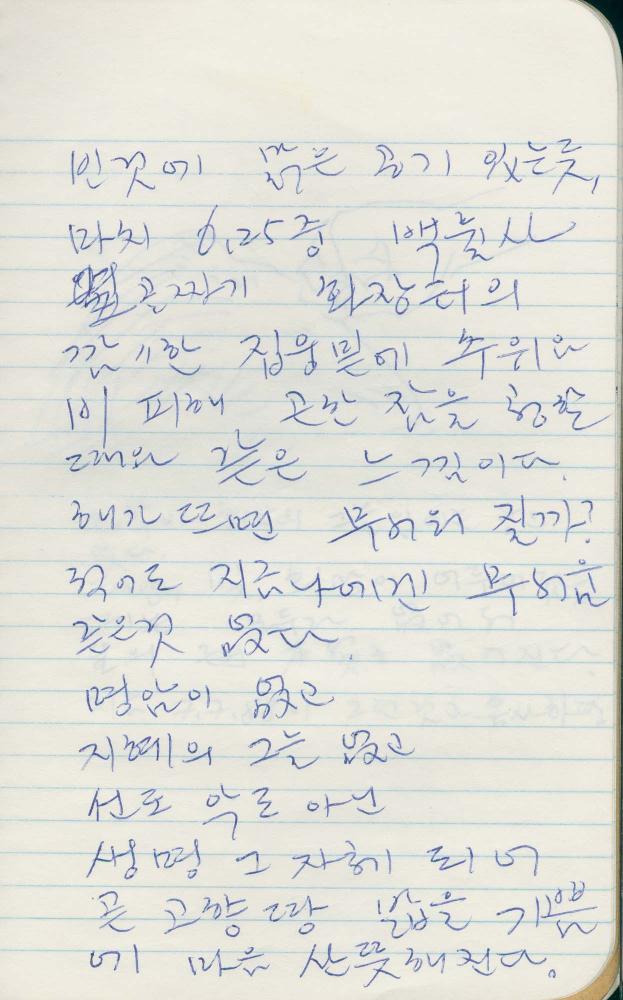 빈곳에 맑은 공기 있는듯,
마치 6.25중 백
골짜기 화장터의
집웅밑에 추위와
비 피해 곤한 잠을 청할
때와 같은 느낌이다.
해가 뜨면 무어 질까?
적어도 지금 나에겐 무서움
같은것 없다.
명암이 없고
지혜의 그늘 없고
선도 악도 아닌
생명 그 자체 되어
곧 고향땅 밟을 기쁨
에 마음 산뜻해진다.